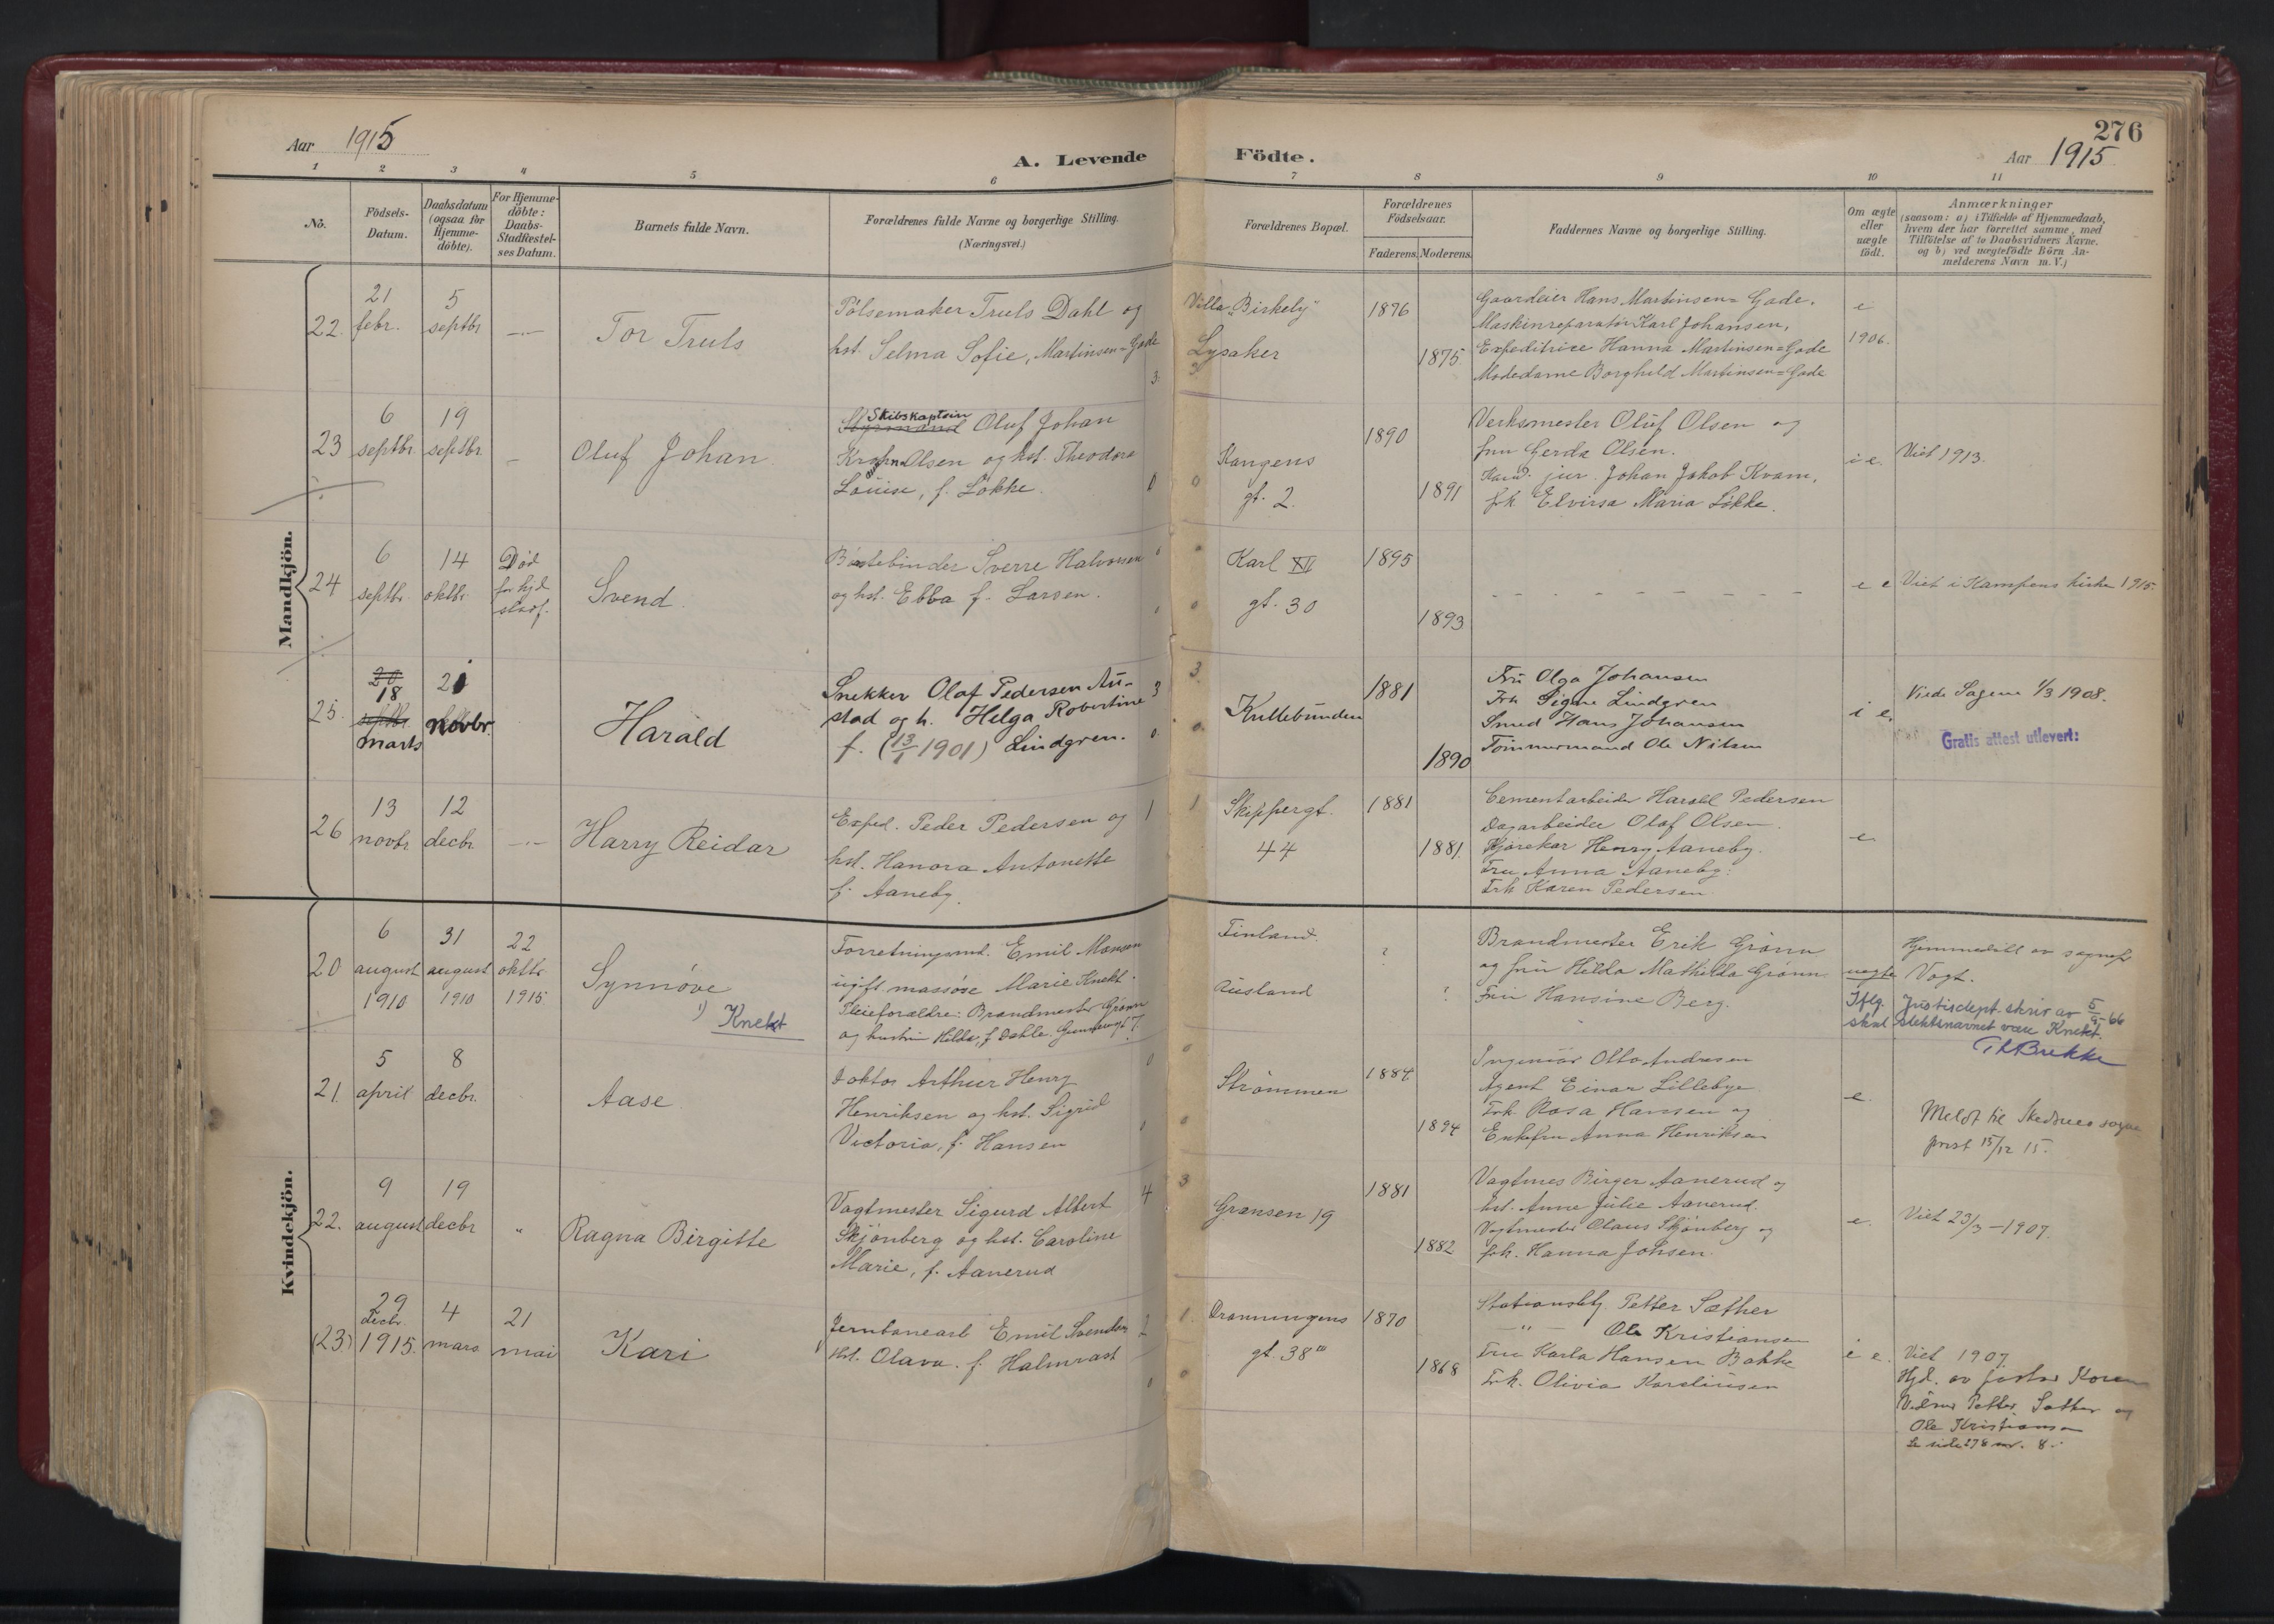 Aar 1915
A. Levende Födte.
276
Aar 1915
1 2 3 4 5 6 7 8 9 10 11
No.
Födsels-Datum.
Daabsdatum (ogsaa for Hjemme-döbte).
For Hjemme-döbte: Daabs-Stadfæstel-ses Datum.
Barnets fulde Navn.
Forældrenes fulde Navne og borgerlige Stilling.
(Næringsvei.)
Forældrenes Bopæl.
Forældrenes Födselsaar.
Faderens. Moderens.
Faddernes Navne og borgerlige Stilling.
Om ægte eller uægte födt.
Anmærkninger
(saasom: a) i Tilfælde af Hjemmedaab,
hvem der har forrettet samme, med
Tilföielse af to Daabsvidners Navne,
og b) ved uægtefödte Börn An-
melderens Navn m. V.)
Mandkjön.
22. 21 febr. 5 septbr
Tor Truls
Pölsemaker Truls Dahl og
hst. Selma Sofie, Martinsen=Gade
3
Villa "Birkely"
Lysaker
3
1876
1875
Gaardeier Hans Martinsen=Gade.
Maskinreparatör Karl Johansen,
Expeditrice Hanna Martinsen=Gade
Modedame Borghild Martinsen=Gade
e
1906.
23 6 septbr. 19 septbr
Oluf Johan
Skibskaptein
Styrmand Oluf Johan
Olsen og hst. Theodora
Louise, f. Løkke.
0
0
Kongens
gt. 2
1890
1891
Verksmester Oluf Olsen og
fru Gerda Olsen.
Kand. jur. Johan Jakob Kvam,
frk Elvirsa Maria Løkke.
i e.
Viet 1913.
24 6 septbr. 14 oktbr.
Død
før hjd
stadf.
Svend
Børstebinder Sverre Halvorsen
og hst. Ebba f. Larsen.
0
0
Karl XII
gt. 30
1895
1893
e e
Viet i Kampens kirke 1915.
25. 20 18 septbr. marts 21 novbr.
Harald
Snekker Olaf Pedersen Au-
stad og h. Helga Robertine
f. (13/1 1901) Lindgren.
3
0
3.
0.
Kullebunden
1881
1890
Fru Olga Johansen
Frk Signe Lindgren
Smed Hans Johansen
Tømmermand Ole Nilsen
i e.
Viede Sagene 1/3 1908.
Gratis attest utlevert:
26 13 novbr 12 decbr
Harry Reidar
Exped. Peder Pedersen og
hst. Hanora Antonette
f. Aaneby.
1
1
Skippergt.
44
1881
1881.
Cementarbeider Harald Pedersen
Dagarbeider Olaf Olsen.
Kjørekar Henry Aaneby.
Fru Anna Aaneby.
Frk Karen Pedersen.
e
Kvindekjön.
20 6 august 1910 31 august 1910 22 oktbr 1915
Synnøve
1) Knekt
Forretningsmd. Emil Monsen
ugift massøse Marie Knekt.
Pleieforældre: Brandmester Grønn
og hustru Hilda, f. Dahle.
Finland.
Rusland
?
?
Brandmester Erik Grønn
og fru Hilda Mathilda Grønn.
Fru Hansine Berg.
uegte
Hjemmedöbt av sognepr
Vogt.
Iflg. Justisdept. skriv av 5/9-66
skal slektsnavnet være Knekt.
Th Brekke
21. 5 april 8 decbr.
Aase
Doktor Arthur Henry
Henriksen og hst. Sigrid
Victoria, f. Hansen
0
0
Strømmen
1884
1894
Ingeniør Otto Andresen
Agent Einar Lillebye
Frk. Rosa Hansen og
Enkefru Anna Henriksen
e.
Meldt til Skedsmo sogne
prest 15/12 15.
22. 9 august 19 decbr
Ragna Birgitte
Vagtmester Sigurd Albert
Skjønberg og hst. Caroline
Marie, f. Aanerud
4
3
Grænsen 19
1881
1882
Vagtmes Birger Aanerud og
hst. Anne Julie Aanerud.
Vagtmester Olaus Skjønberg og
frk. Hanna Johsen.
e.
Viet 23/3-1907.
(23.) 29 decbr. 1915. 4 mars 21 mai
Kari
Jernbanearb Emil Svendsen
hst. Olava f. Halmrast
2
0
1.
0
Dronningens
gt. 38
1870
1868
Stationsbtj Petter Sæther
— " — Ole Kristiansen
Fru Karla Hansen Bakke
Frk. Olivia Karelinsen
i e.
Viet 1907.
Hjd. av pastor Koren
Vidner Petter Sæther og
Ole Kristiansen
Se side 278 nr. 8.